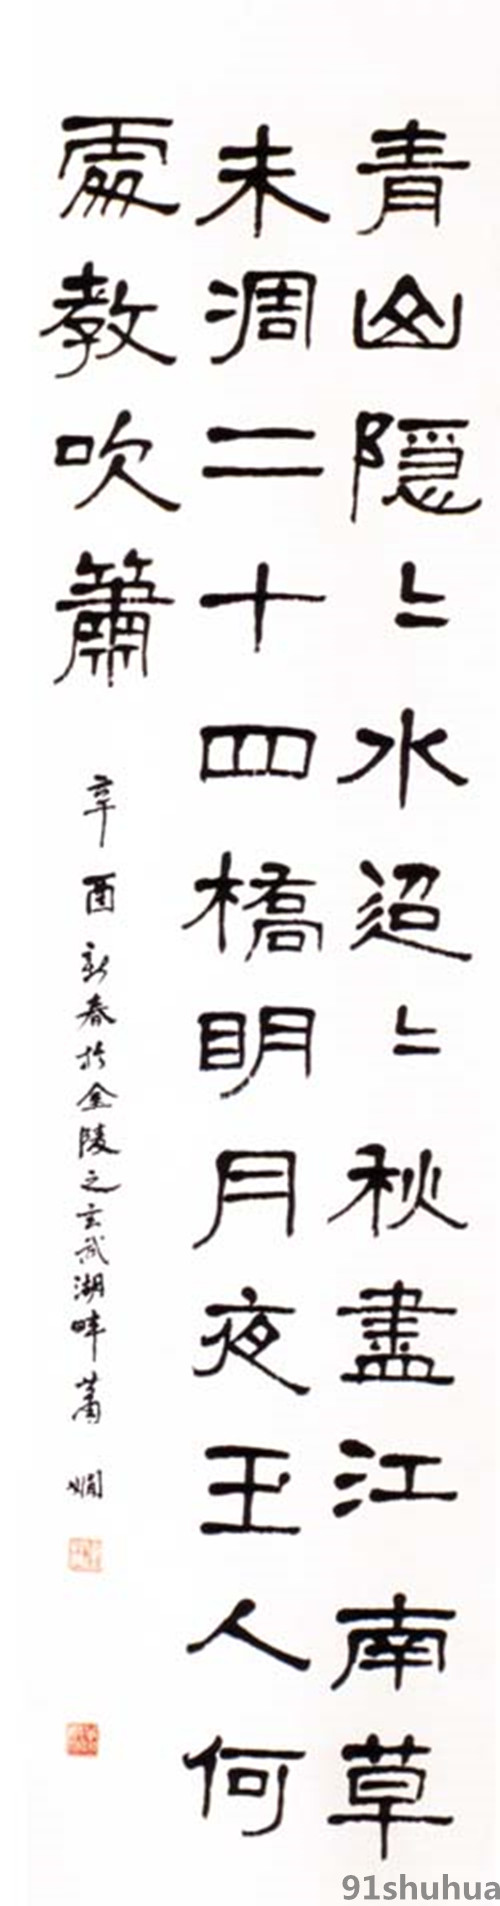 青山隱〻水迢〻秋盡江南草
未凋二十四橋明月夜玉人何
處教吹簫
辛酉新春於金陵之玄武湖畔蕭嫻
91shuhua